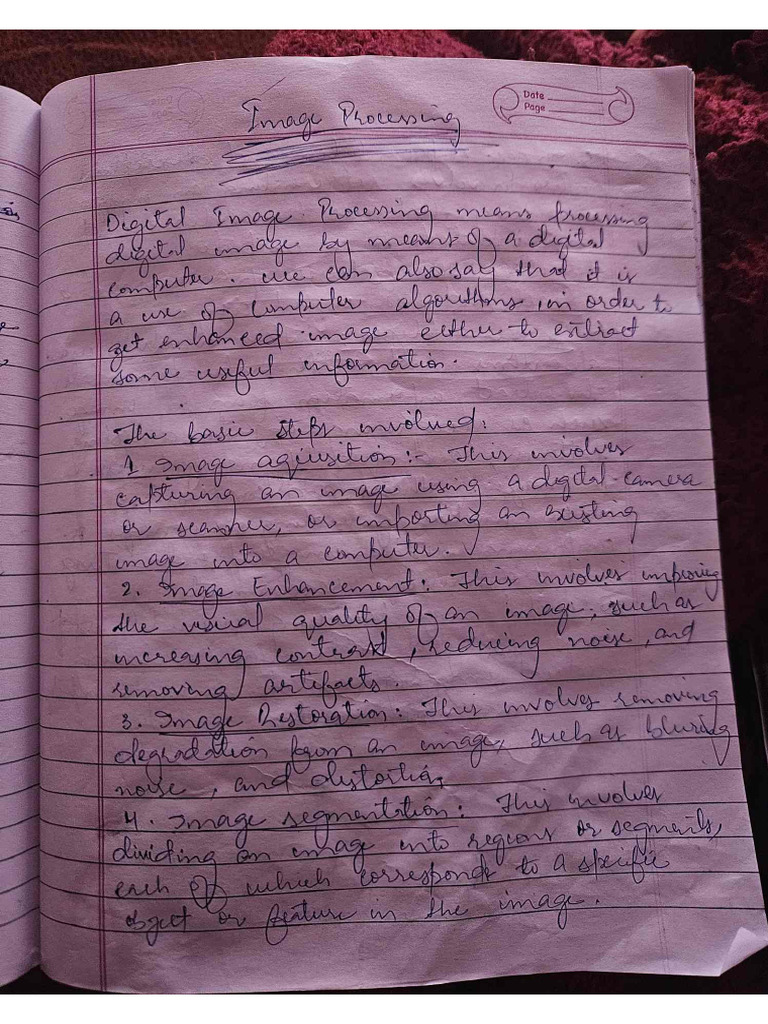 Date
Page
Image Processing
Digital Image Processing means processing
digital image by means of a digital
computer. we can also say that it is
a use of computer algorithms, in order to
get enhanced image either to extract
some useful information.
The basic steps involved:
1 Image aqiusition:- This involves
capturing an image using a digital camera
or scanner, or importing an existing
image into a computer.
2. Image Enhancement: This involves improving
the visual quality of an image, such as
increasing contrast, reducing noise, and
removing artifacts.
3. Image Restoration: This involves removing
degradation from an image, such as bluring
noise, and distortion,
4. Image segmentation: This involves
dividing an image into regions or segments,
each of which corresponds to a specific
object or feature in the image.